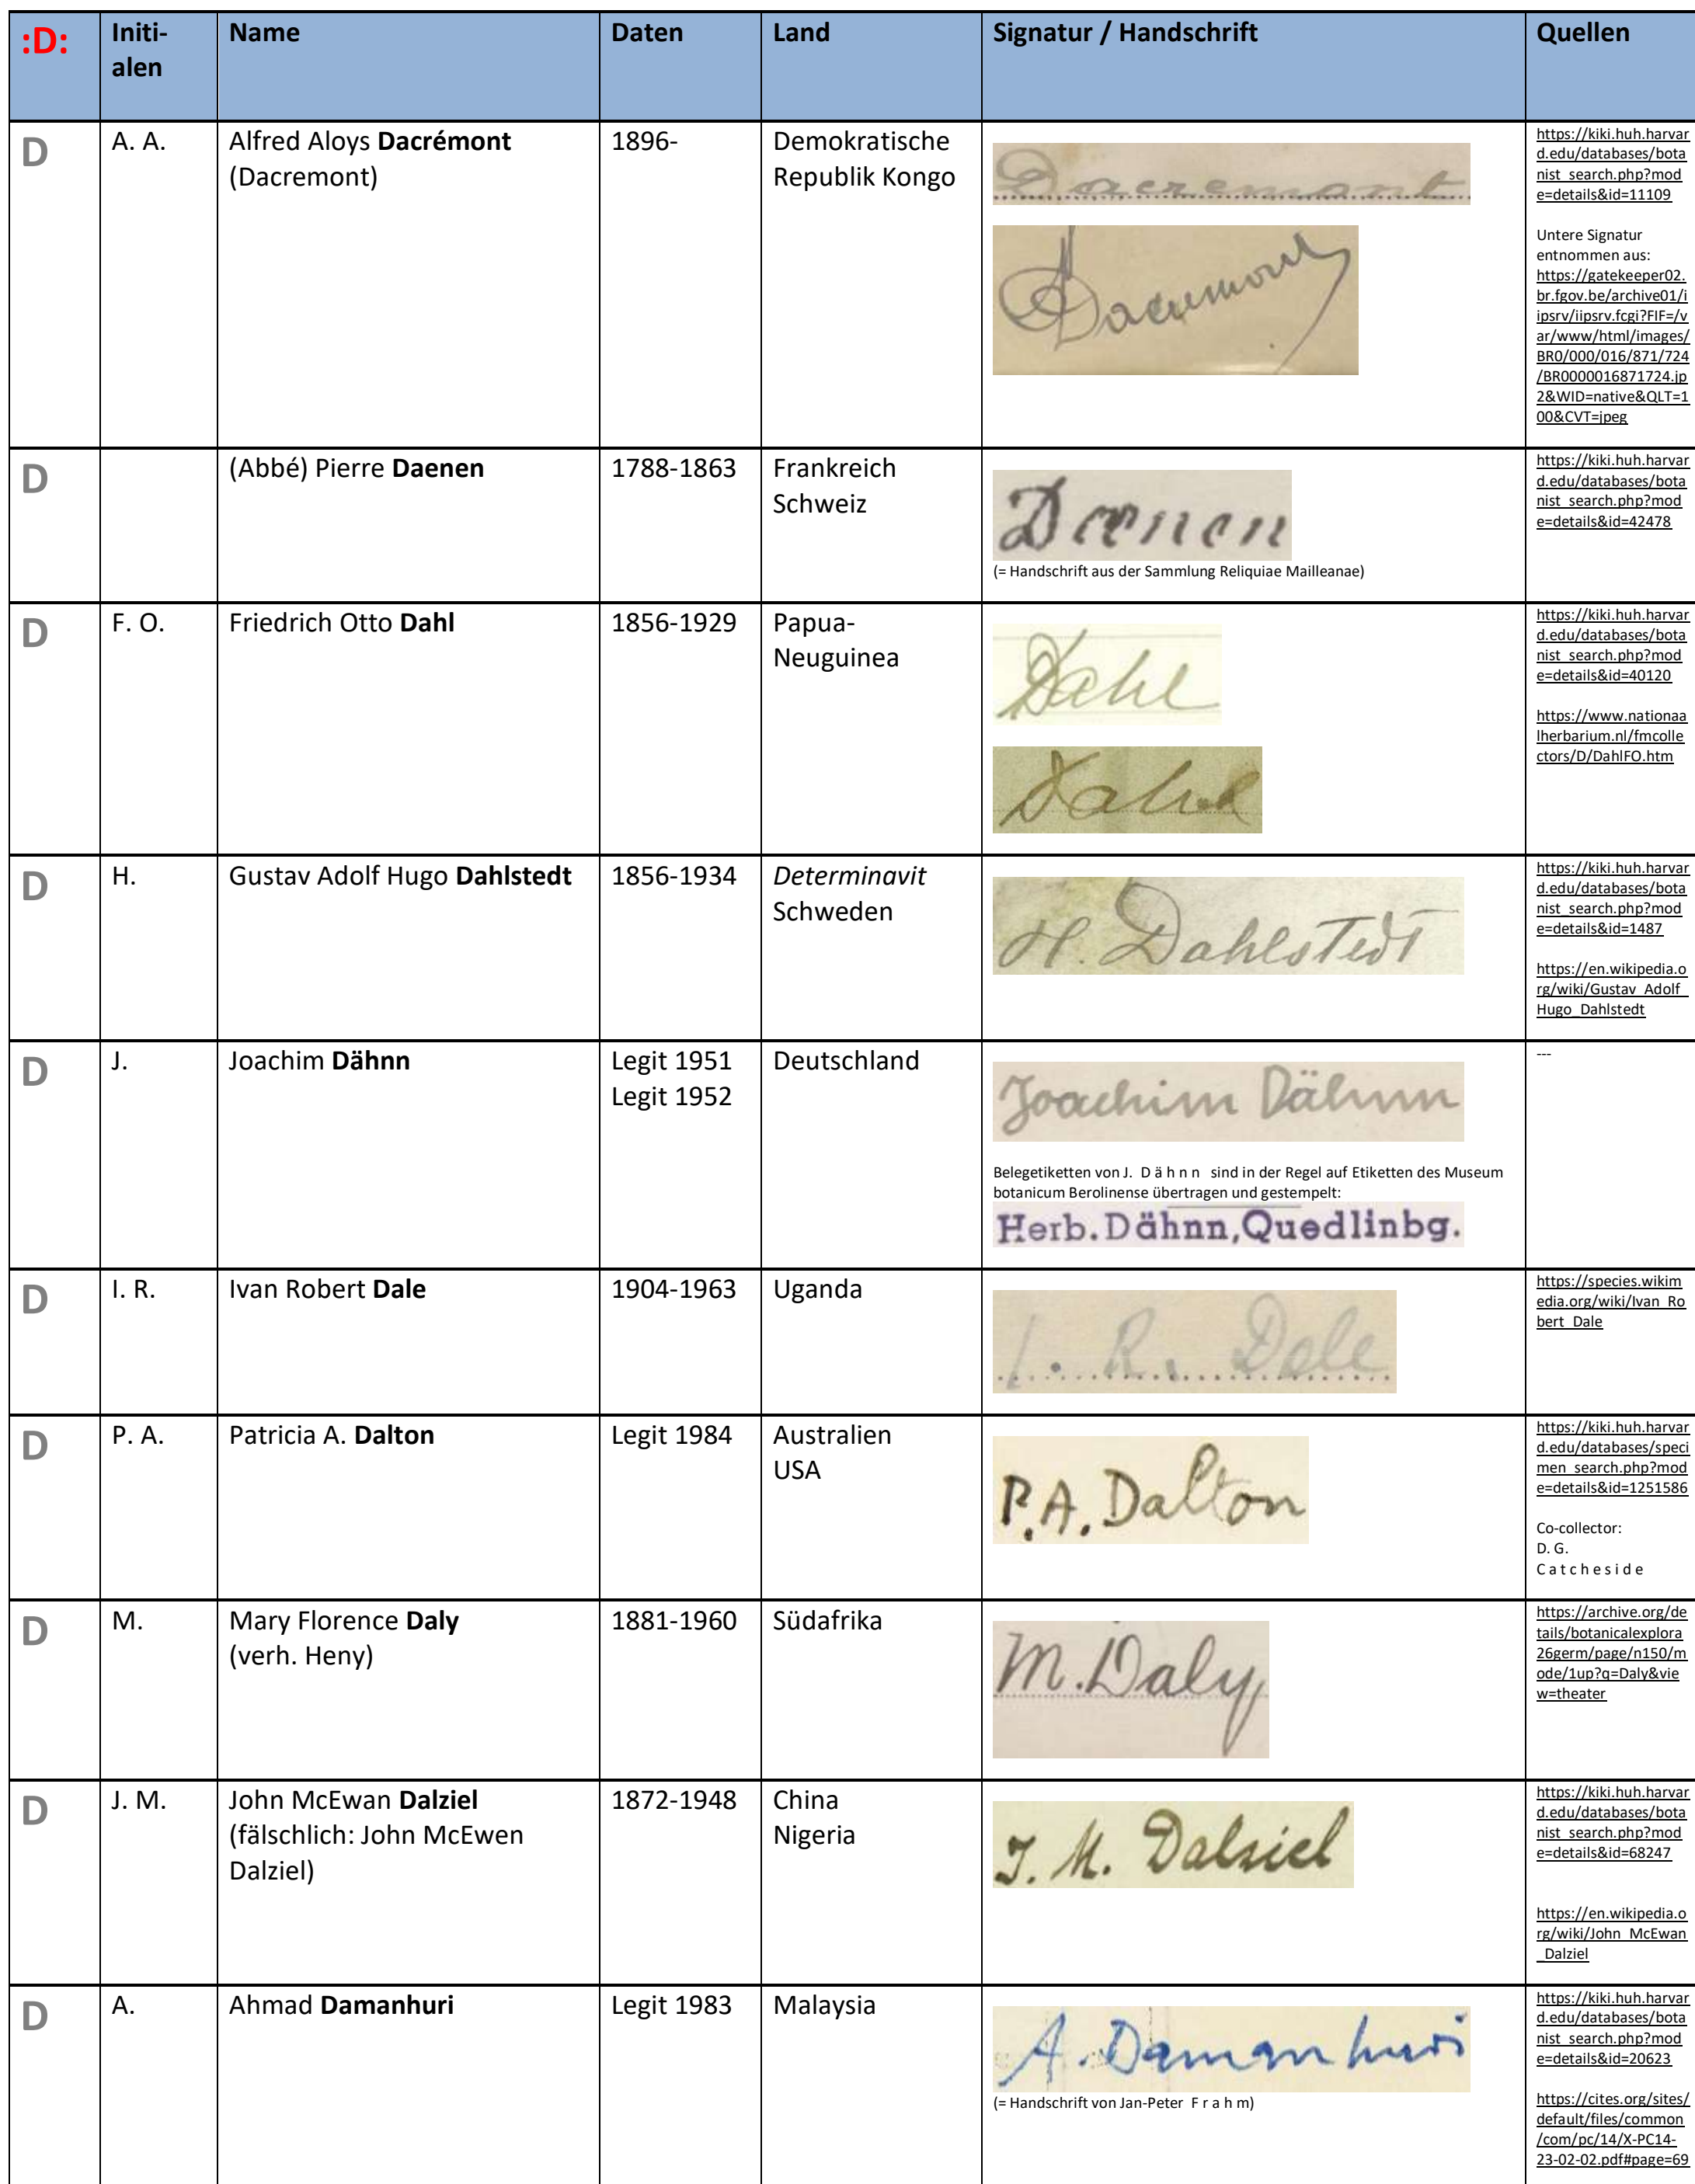 :D: Initi- Name Daten Land Signatur / Handschrift Quellen
alen
D A. A. Alfred Aloys Dacrémont 1896- Demokratische
(Dacremont) Republik Kongo
Dacremont
Dacremont
https://kiki.huh.harvar
d.edu/databases/bota
nist_search.php?mod
e=details&id=11109
Untere Signatur
entnommen aus:
https://gatekeeper02.
br.fgov.be/archive01/i
ipsrv/iipsrv.fcgi?FIF=/v
ar/www/html/images/
BR0/000/016/871/724
/BR0000016871724.jp
2&WID=native&QLT=1
00&CVT=jpeg
D (Abbé) Pierre Daenen 1788-1863 Frankreich
Schweiz
Daenen
(= Handschrift aus der Sammlung Reliquiae Mailleanae)
https://kiki.huh.harvar
d.edu/databases/bota
nist_search.php?mod
e=details&id=42478
D F. O. Friedrich Otto Dahl 1856-1929 Papua-
Neuguinea
Dahl
Dahl
https://kiki.huh.harvar
d.edu/databases/bota
nist_search.php?mod
e=details&id=40120
https://www.nationaa
lherbarium.nl/fmcolle
ctors/D/DahlFO.htm
D H. Gustav Adolf Hugo Dahlstedt 1856-1934 Determinavit
Schweden
H. Dahlstedt
https://kiki.huh.harvar
d.edu/databases/bota
nist_search.php?mod
e=details&id=1487
https://en.wikipedia.o
rg/wiki/Gustav_Adolf_
Hugo_Dahlstedt
D J. Joachim Dähnn Legit 1951 Deutschland
Legit 1952
Joachim Dähnn
Belegetiketten von J. D ä h n n sind in der Regel auf Etiketten des Museum
botanicum Berolinense übertragen und gestempelt:
Herb. Dähnn, Quedlinbg.
---
D I. R. Ivan Robert Dale 1904-1963 Uganda
I. R. Dale
https://species.wikim
edia.org/wiki/Ivan_Ro
bert_Dale
D P. A. Patricia A. Dalton Legit 1984 Australien
USA
P.A. Dalton
https://kiki.huh.harvar
d.edu/databases/speci
men_search.php?mod
e=details&id=1251586
Co-collector:
D. G.
C a t c h e s i d e
D M. Mary Florence Daly 1881-1960 Südafrika
(verh. Heny)
M. Daly
https://archive.org/de
tails/botanicalexplora
26germ/page/n150/m
ode/1up?q=Daly&vie
w=theater
D J. M. John McEwan Dalziel 1872-1948 China
(fälschlich: John McEwen Nigeria
Dalziel)
J. M. Dalziel
https://kiki.huh.harvar
d.edu/databases/bota
nist_search.php?mod
e=details&id=68247
https://en.wikipedia.o
rg/wiki/John_McEwan
_Dalziel
D A. Ahmad Damanhuri Legit 1983 Malaysia
A. Damanhuri
(= Handschrift von Jan-Peter F r a h m)
https://kiki.huh.harvar
d.edu/databases/bota
nist_search.php?mod
e=details&id=20623
https://cites.org/sites/
default/files/common
/com/pc/14/X-PC14-
23-02-02.pdf#page=69